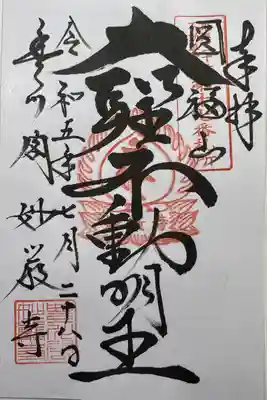 奉拝
圓福山
大聖不動明王
令和五年七月二十八日
豊川閣妙嚴寺